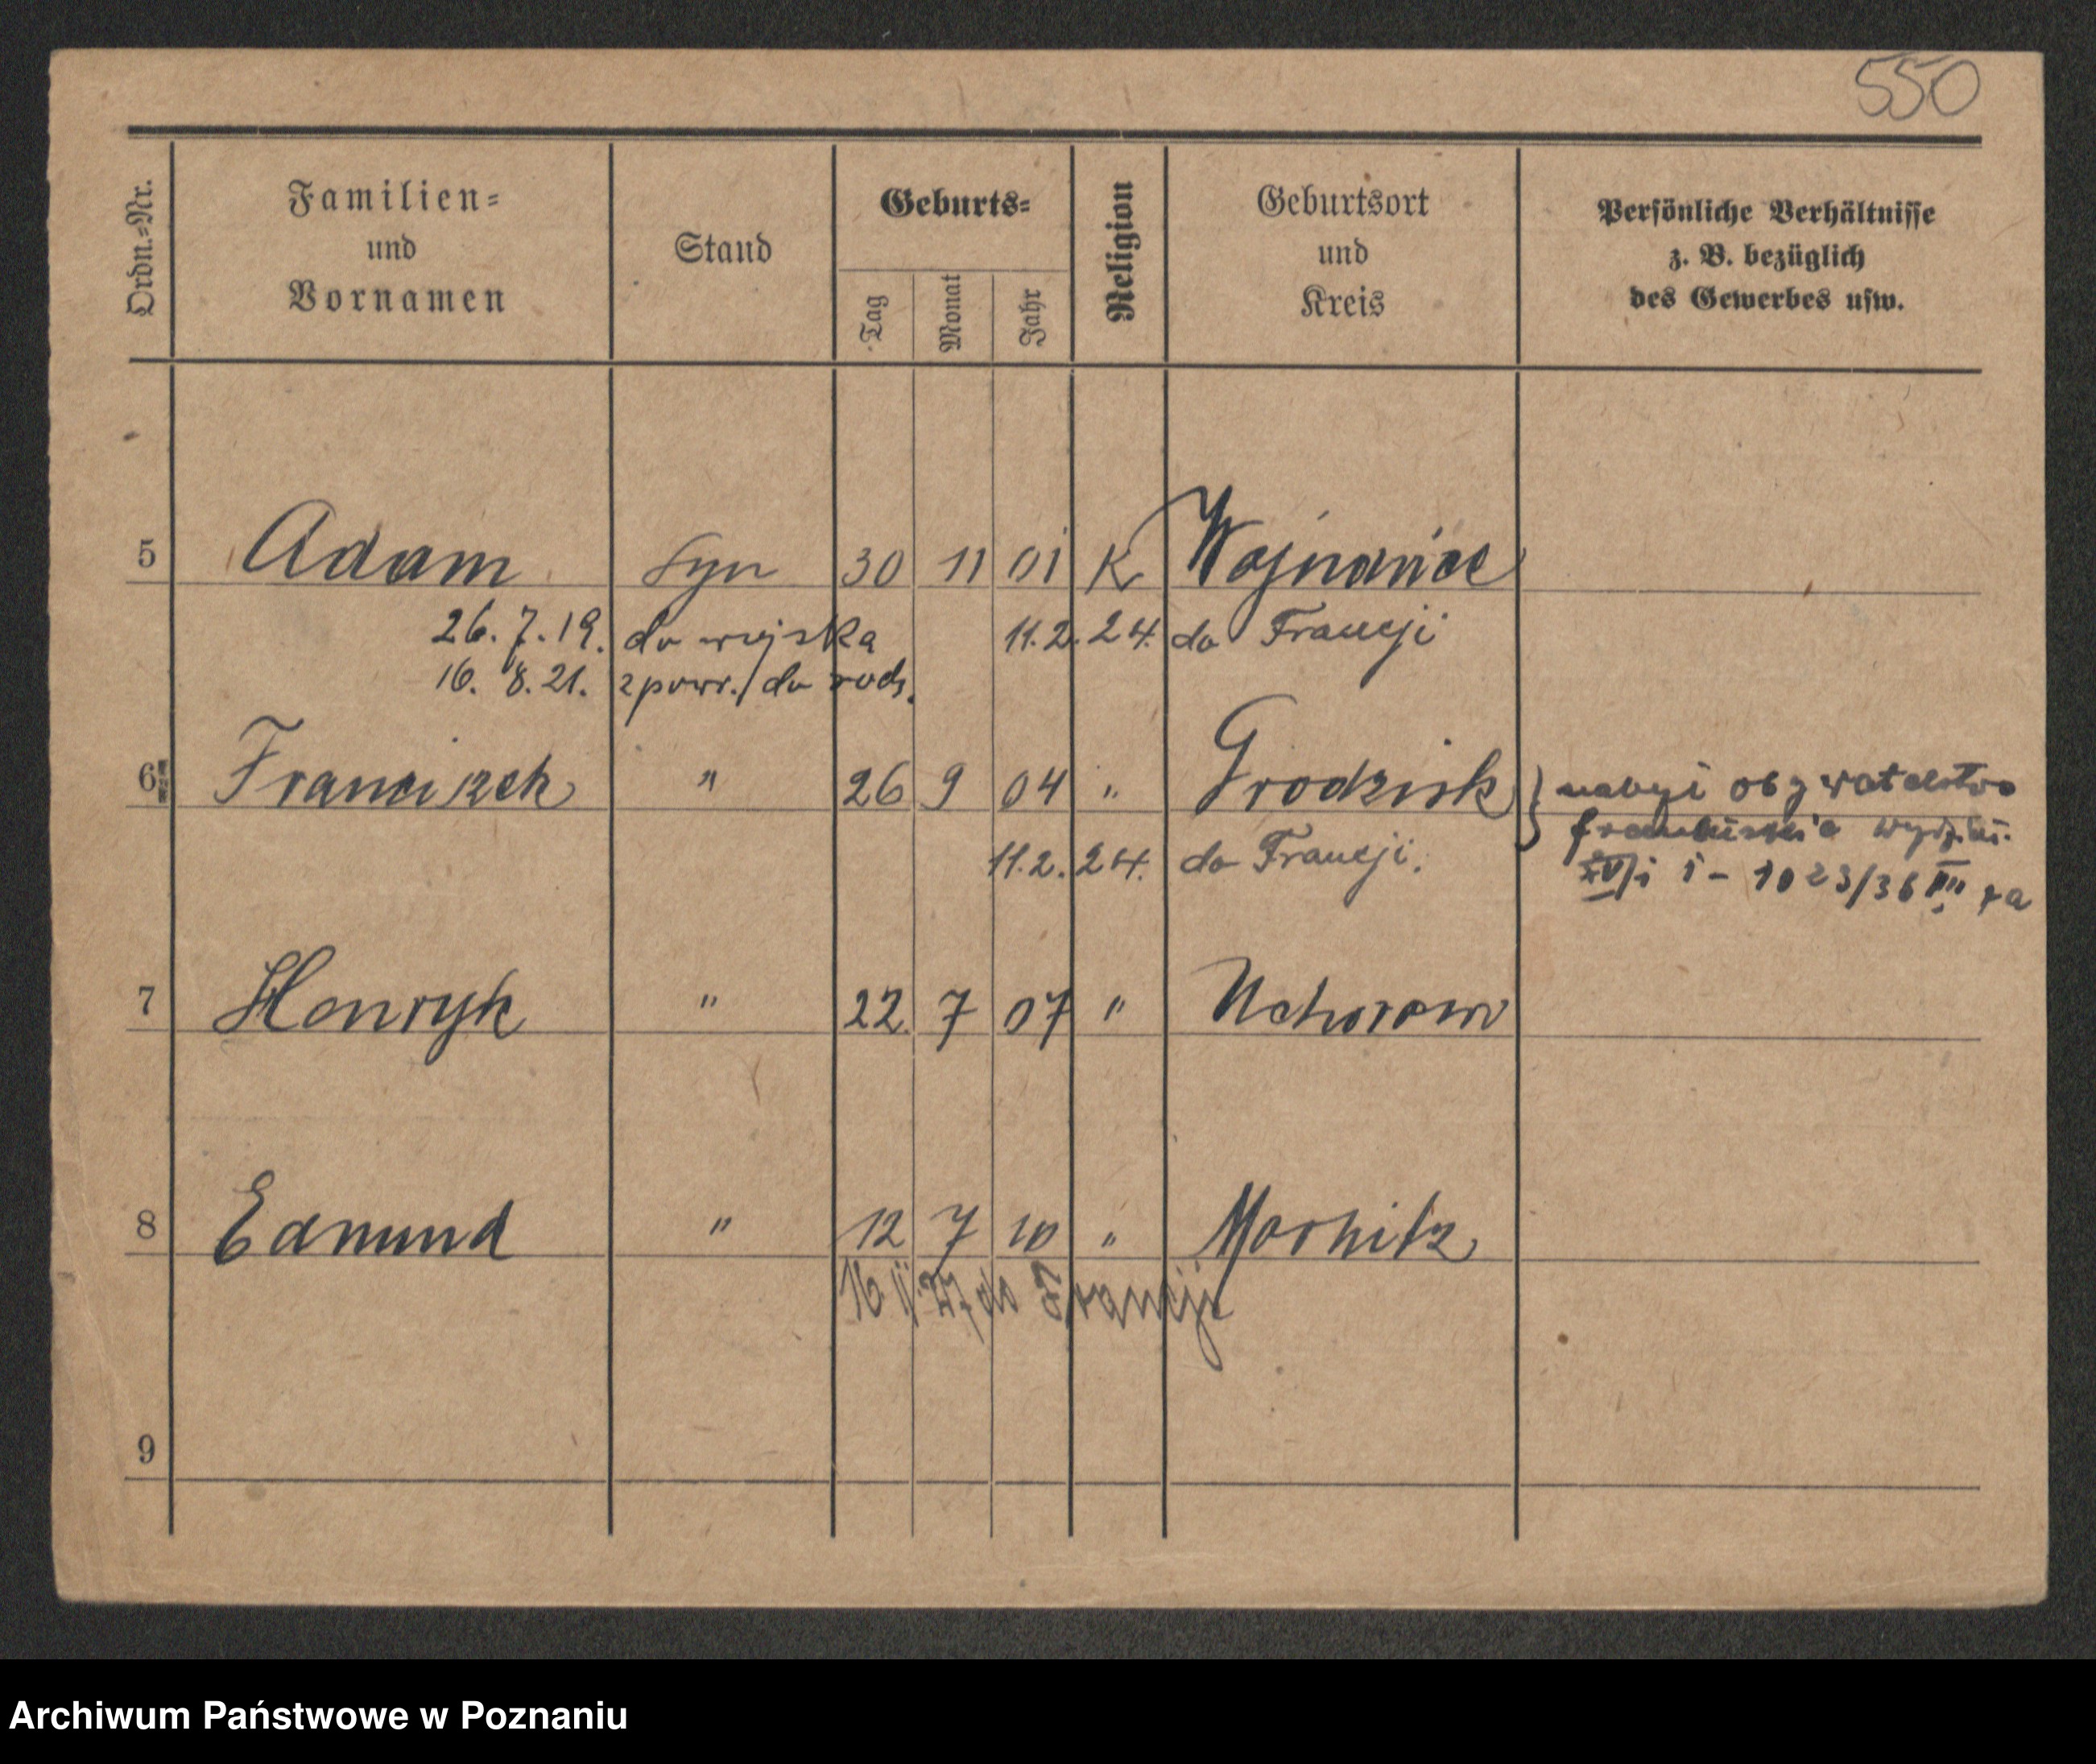 550
Ordn.-Nr. Familien- und Vornamen Stand Geburts- Tag Monat Jahr Religion Geburtsort und Kreis Persönliche Verhältnisse z. B. bezüglich des Gewerbes usw.
5 Adam syn 30 11 01 K Wojnowice
26.7.19. do wojska 11.2.24. do Francji
16. 8. 21. z powr. / do rodz.
6 Franciszek " 26 9 04 " Grodzisk } nabył obywatelstwo
francuskie
11.2.24. do Francji. 1023/36
7 Henryk " 22 7 07 " Uchorowo
8 Edmund " 12 7 10 "
16 11 27 do Francji
9
Archiwum Państwowe w Poznaniu